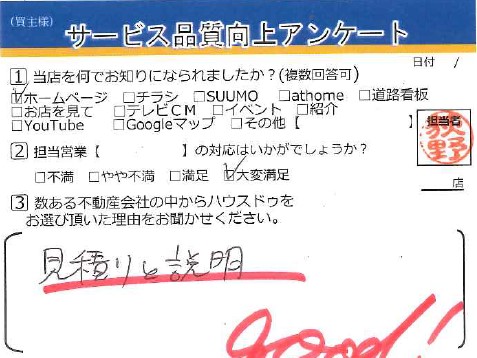 (買主様)
サービス品質向上アンケート
日付 /
1 当店を何でお知りになられましたか?(複数回答可)
☑ホームページ □チラシ □SUUMO □athome □道路看板
□お店を見て □テレビCM □イベント □紹介
□YouTube □Googleマップ □その他【 】
担当者
荻野
2 担当営業【 】の対応はいかがでしょうか?
□不満 □やや不満 □満足 ☑大変満足
店
3 数ある不動産会社の中からハウスドゥを
お選び頂いた理由をお聞かせください。
見積りと説明
Good!